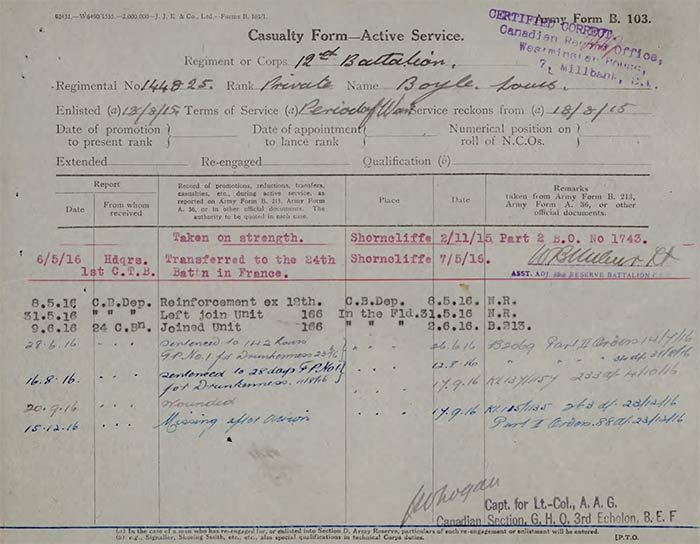 62431.—W8490/1535.—2,000,000—J. J. K. & Co., Ltd.—Forms B. 103/1.
Army Form B. 103.
CERTIFIED CORRECT.
Canadian Record Office,
Westminster House,
7, Millbank, S.W.
Casualty Form—Active Service.
Regiment or Corps 12th Battalion.
Regimental No 144825. Rank Private Name Boyle Louis.
Enlisted (a) 18/8/15. Terms of Service (a) Period of War Service reckons from (a) 18/8/15
Date of promotion to present rank } Date of appointment to lance rank } Numerical position on roll of N.C.Os. }
Extended Re-engaged Qualification (b)
Report
Date From whom received
Record of promotions, reductions, transfers, casualties, etc., during active service, as reported on Army Form B. 213, Army Form A. 36, or in other official documents. The authority to be quoted in each case.
Place
Date
Remarks
taken from Army Form B. 213, Army Form A. 36, or other official documents.
Taken on strength. Shorncliffe 2/11/15 Part 2 B.O. No 1743.
6/5/16 Hdqrs. 1st C.T.B. Transferred to the 24th Battn in France. Shorncliffe 7/5/16.
ASST. ADJ. RESERVE BATTALION
8.5.16 C.B.Dep. Reinforcement ex 12th. C.B.Dep. 8.5.16. N.R.
31.5.16 " " " Left join Unit 166 In the Fld. 31.5.16 N.R.
9.6.16 24 C.Bn. Joined Unit 166 " " " 2.6.16. B.213.
28.6.16 Sentenced to 142 hours 26.6.16 B2069 Part II Orders 14/7/16
F.P. No.1 for Drunkenness 12.8.16 " " 31/8/16
16.8.16. sentenced to 28 days F.P. No.1
for Drunkenness 11/8/16 17.9.16 233 d/ 4/10/16
20.9.16 Wounded 17.9.16 263 d/ 23/12/16
15.12.16 Missing after action Part II Orders. 88 d/. 23/12/16
Capt. for Lt-Col., A. A. G.
Canadian Section, G. H. Q. 3rd Echelon, B. E. F
(a) In the case of a man who has re-engaged for, or enlisted into Section D, Army Reserve, particulars of such re-engagement or enlistment will be entered.
(b) e.g., Signaller, Shoeing Smith, etc., etc., also special qualifications in technical Corps duties.
[P.T.O.